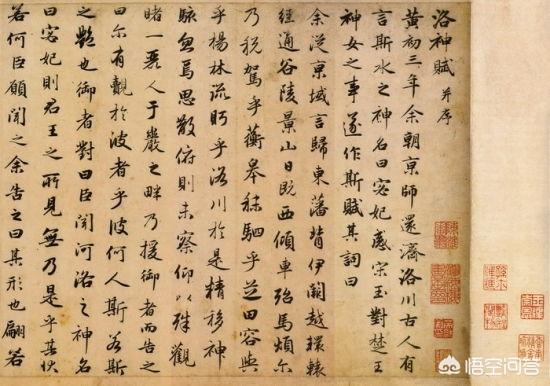 洛神賦 并序
黃初三年余朝京師還濟洛川古人有
言斯水之神名曰宓妃感宋玉對楚王
神女之事遂作斯賦其詞曰
余從京域言歸東藩背伊闕越轘轅
經通谷陵景山日既西傾車殆馬煩尒
乃稅駕乎蘅皋秣駟乎芝田容與
乎楊林流眄乎洛川於是精移神
駭忽焉思散俯則未察仰以殊觀
睹一麗人于巖之畔乃援御者而告之
曰尒有觀於彼者乎彼何人斯若斯
之豔也御者對曰臣聞河洛之神名
曰宓妃則君王之所見無乃是乎其狀
若何臣願聞之余告之曰其形也翩若
悟空问答